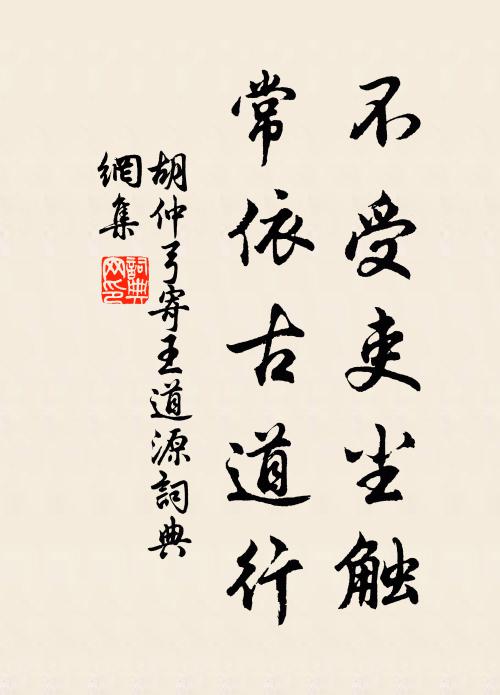 不受吏尘触
常依古道行
胡仲弓寄王道源詞典
網集
詞典网印